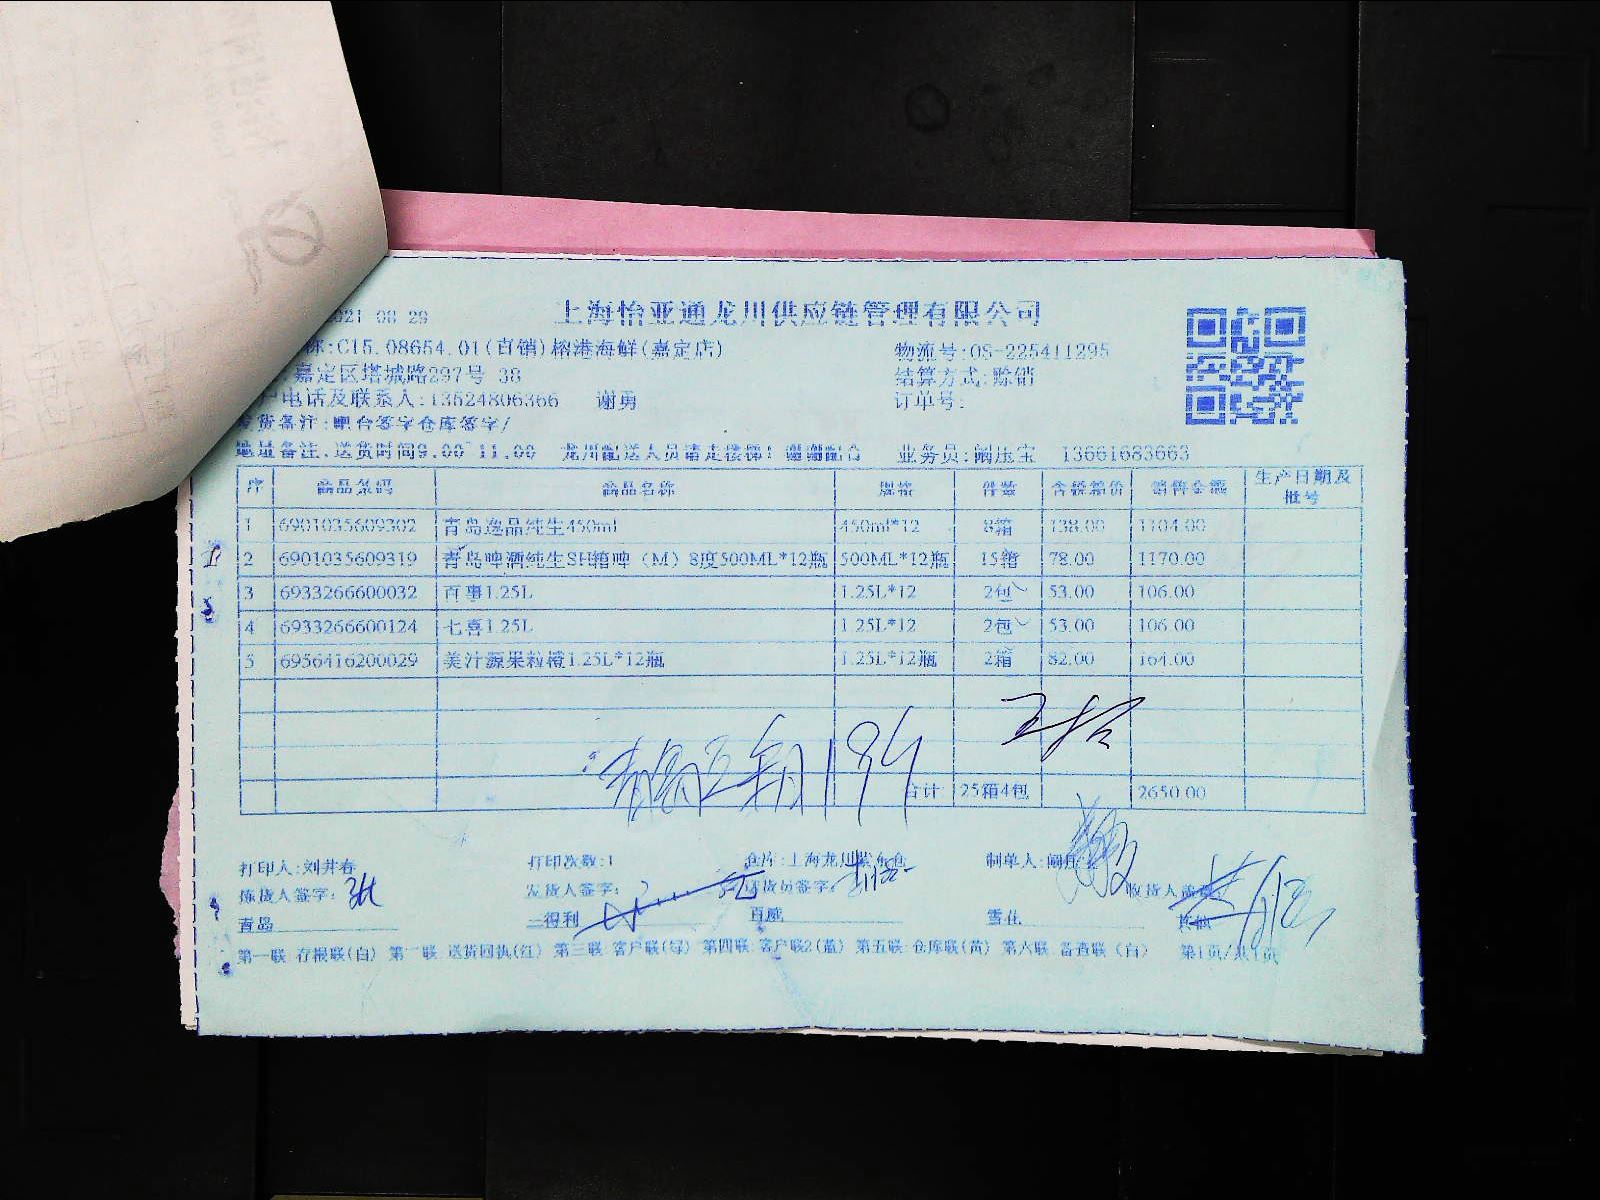 2021 08 29
上海怡亚通龙川供应链管理有限公司
称:C15.08654.01(直销)榕港海鲜(嘉定店)
物流号:OS-225411295
嘉定区塔城路297号 38
结算方式:赊销
户电话及联系人:13524806366 谢勇
订单号:
发货备注:吧台签字仓库签字/
地址备注:送货时间9:00-11:00 龙川配送人员请走楼梯!谢谢配合 业务员: 13661683663
序 商品条码 商品名称 规格 件数 含税箱价 销售金额 生产日期及批号
1 6901035609302 青岛逸品纯生450ml 450ml*12 8箱 138.00 1104.00
2 6901035609319 青岛啤酒纯生SH箱啤(M)8度500ML*12瓶 500ML*12瓶 15箱 78.00 1170.00
3 6933266600032 百事1.25L 1.25L*12 2包 53.00 106.00
4 6933266600124 七喜1.25L 1.25L*12 2包 53.00 106.00
5 6956416200029 美汁源果粒橙1.25L*12瓶 1.25L*12瓶 2箱 82.00 164.00
合计 25箱4包 2650.00
打印人:刘井春 打印次数:1 仓库:上海龙川 制单人:
拣货人签字: 发货人签字: 送货员签字: 收货人
青岛 三得利 百威 雪花 其他
第一联 存根联(白) 第二联 送货回执(红) 第三联 客户联(绿) 第四联 客户联2(蓝) 第五联 仓库联(黄) 第六联 备查联(白) 第1页/共1页